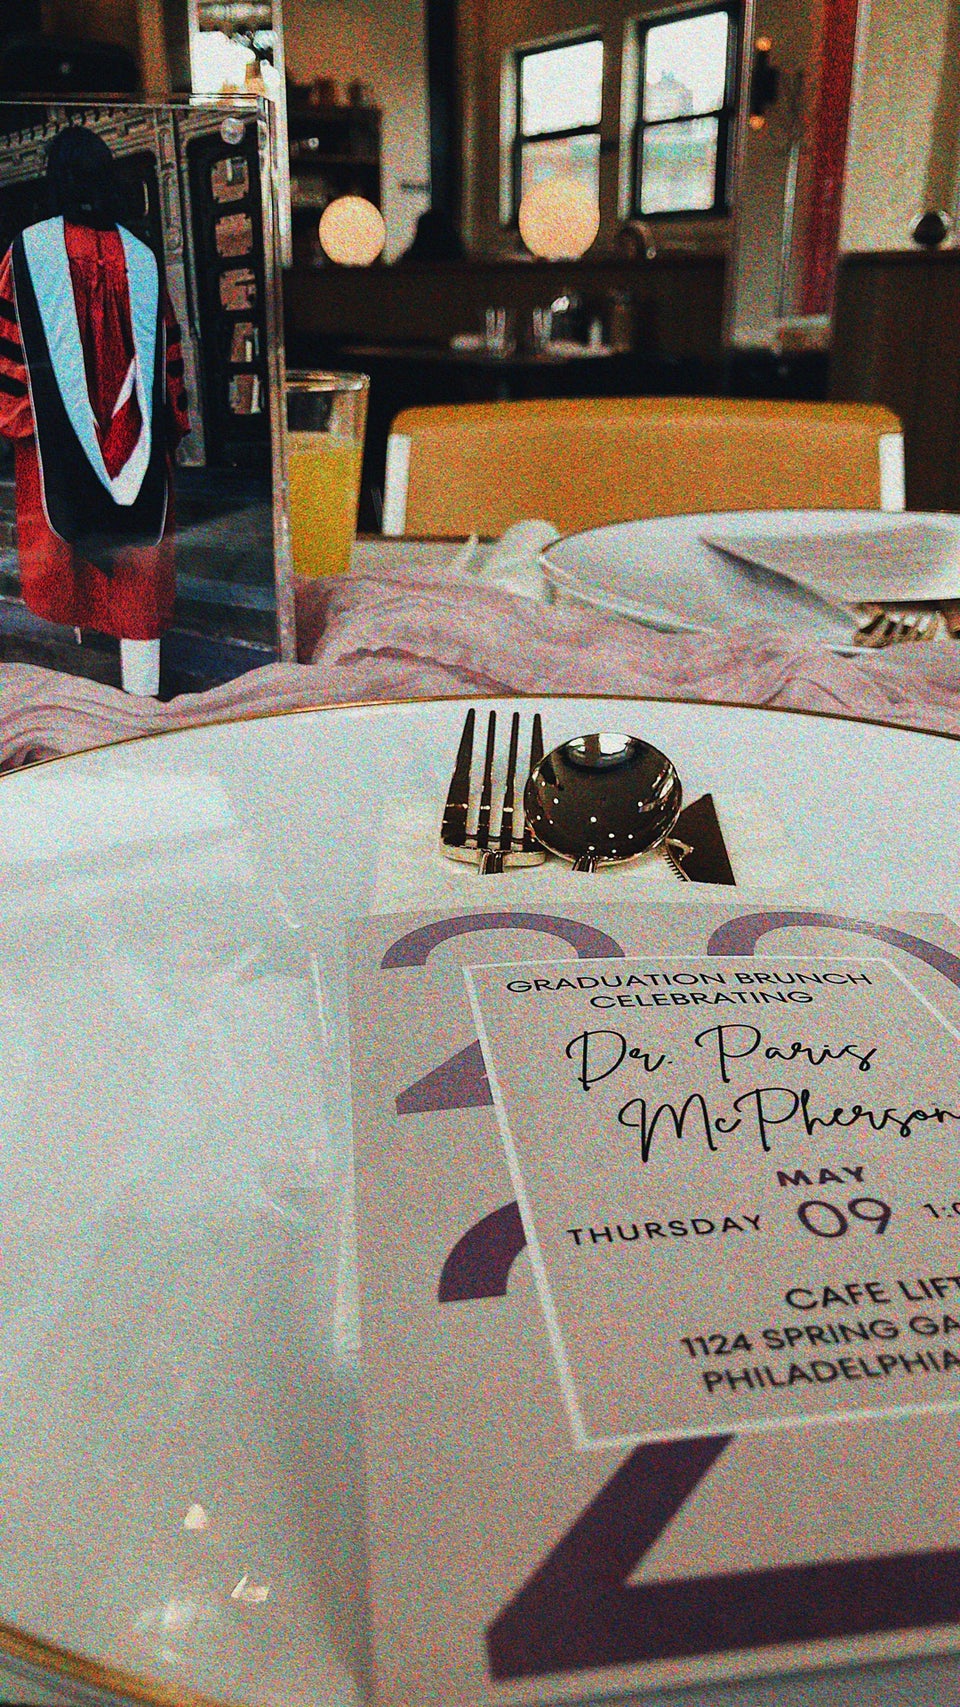 GRADUATION BRUNCH
CELEBRATING
Dr. Paris
McPherson
MAY
THURSDAY 09
CAFE LIFT
1124 SPRING
PHILADELPHIA